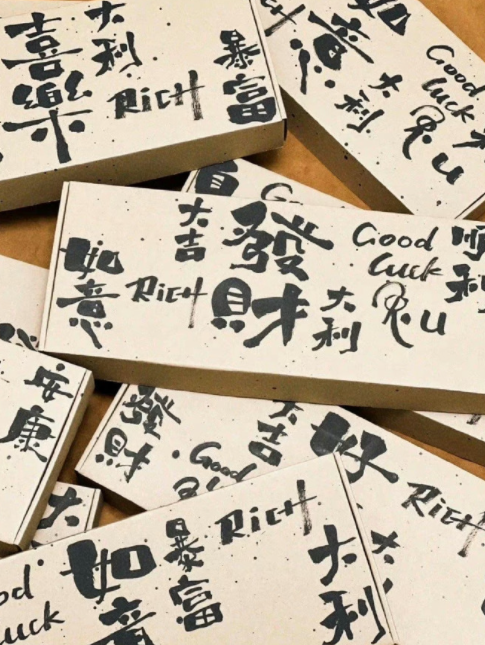 喜樂
大利
RICH
暴富
如意
大利
Good
luck
R u
大吉
發財
Good
luck
R u
順利
如意
RICH
大利
安康
發財
大吉
好
RICH
Good
大
RICH
暴富
如意
大利
luck